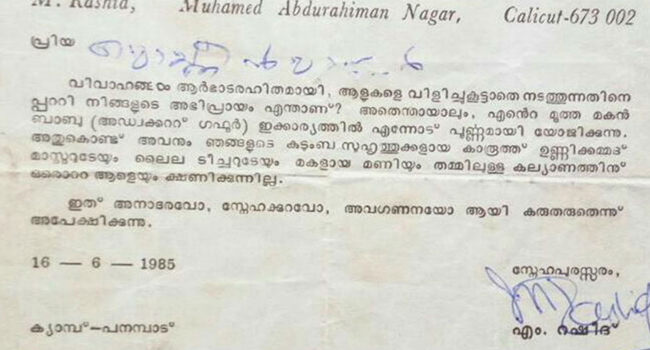 M. Rashid, Muhamed Abdurahiman Nagar, Calicut-673 002
പ്രിയ
വിവാഹങ്ങൾ ആർഭാടരഹിതമായി, ആളുകളെ വിളിച്ചുകൂട്ടാതെ നടത്തുന്നതിനെ
പ്പററി നിങ്ങളുടെ അഭിപ്രായം എന്താണ്? അതെന്തായാലും, എൻെറ മൂത്ത മകൻ
ബാബു (അഡ്വക്കററ് ഗഫൂർ) ഇക്കാര്യത്തിൽ എന്നോട് പൂർണ്ണമായി യോജിക്കുന്നു.
അതുകൊണ്ട് അവനും ഞങ്ങളുടെ കുടുംബ സുഹൃത്തുക്കളായ കാരൂത്ത് ഉണ്ണിക്കമ്മദ്
മാസ്റ്ററുടേയും ലൈല ടീച്ചറുടേയും മകളായ മണിയും തമ്മിലുള്ള കല്യാണത്തിനു്
ഒരൊററ ആളെയും ക്ഷണിക്കുന്നില്ല.
ഇത് അനാദരവോ, സ്നേഹക്കുറവോ, അവഗണനയോ ആയി കരുതരുതെന്നു്
അപേക്ഷിക്കുന്നു.
16 — 6 — 1985
സ്നേഹപുരസ്സരം,
ക്യാമ്പ്—പനമ്പാട്
എം. റഷീദ്